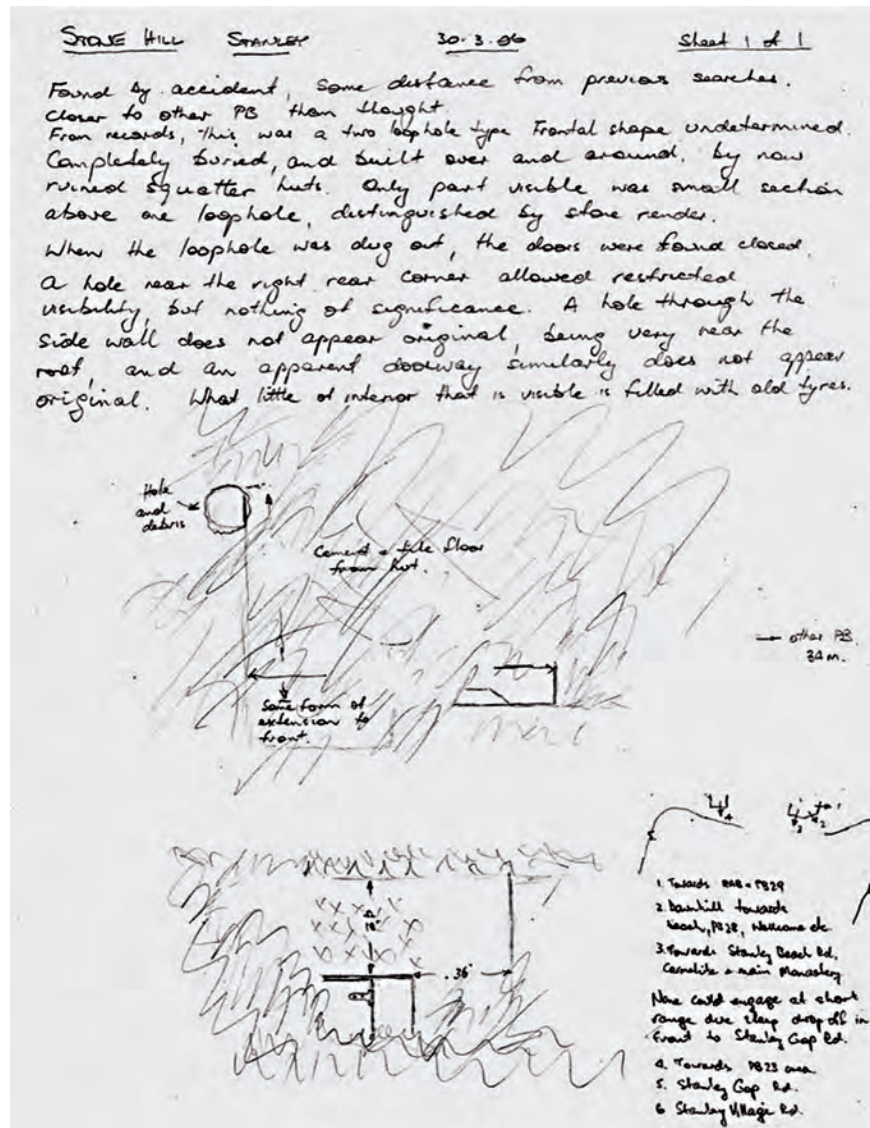 STONE HILL STANLEY 30.3.06 Sheet 1 of 1
Found by accident, some distance from previous searches.
Closer to other PB than thought.
From records, this was a two loophole type Frontal shape undetermined.
Completely buried, and built over and around, by now
ruined squatter huts. Only part visible was small section
above one loophole, distinguished by stone render.
When the loophole was dug out, the doors were found closed.
A hole near the right rear corner allowed restricted
visibility, but nothing of significance. A hole through the
side wall does not appear original, being very near the
roof, and an apparent doorway similarly does not appear
original. What little of interior that is visible is filled with old tyres.
Hole
and
debris
Cement & tile floor
from hut.
→ other PB
34 m.
Some form of
extension to
front.
4
5
3 2
18"
36"
1. Towards PB29
2. Downhill towards
beach, PB28, etc.
3. Towards Stanley Beach Rd,
Carmelite & main Monastery
None could engage at short
range due steep drop off in
front to Stanley Gap Rd.
4. Towards PB23 area
5. Stanley Gap Rd.
6 Stanley Village Rd.